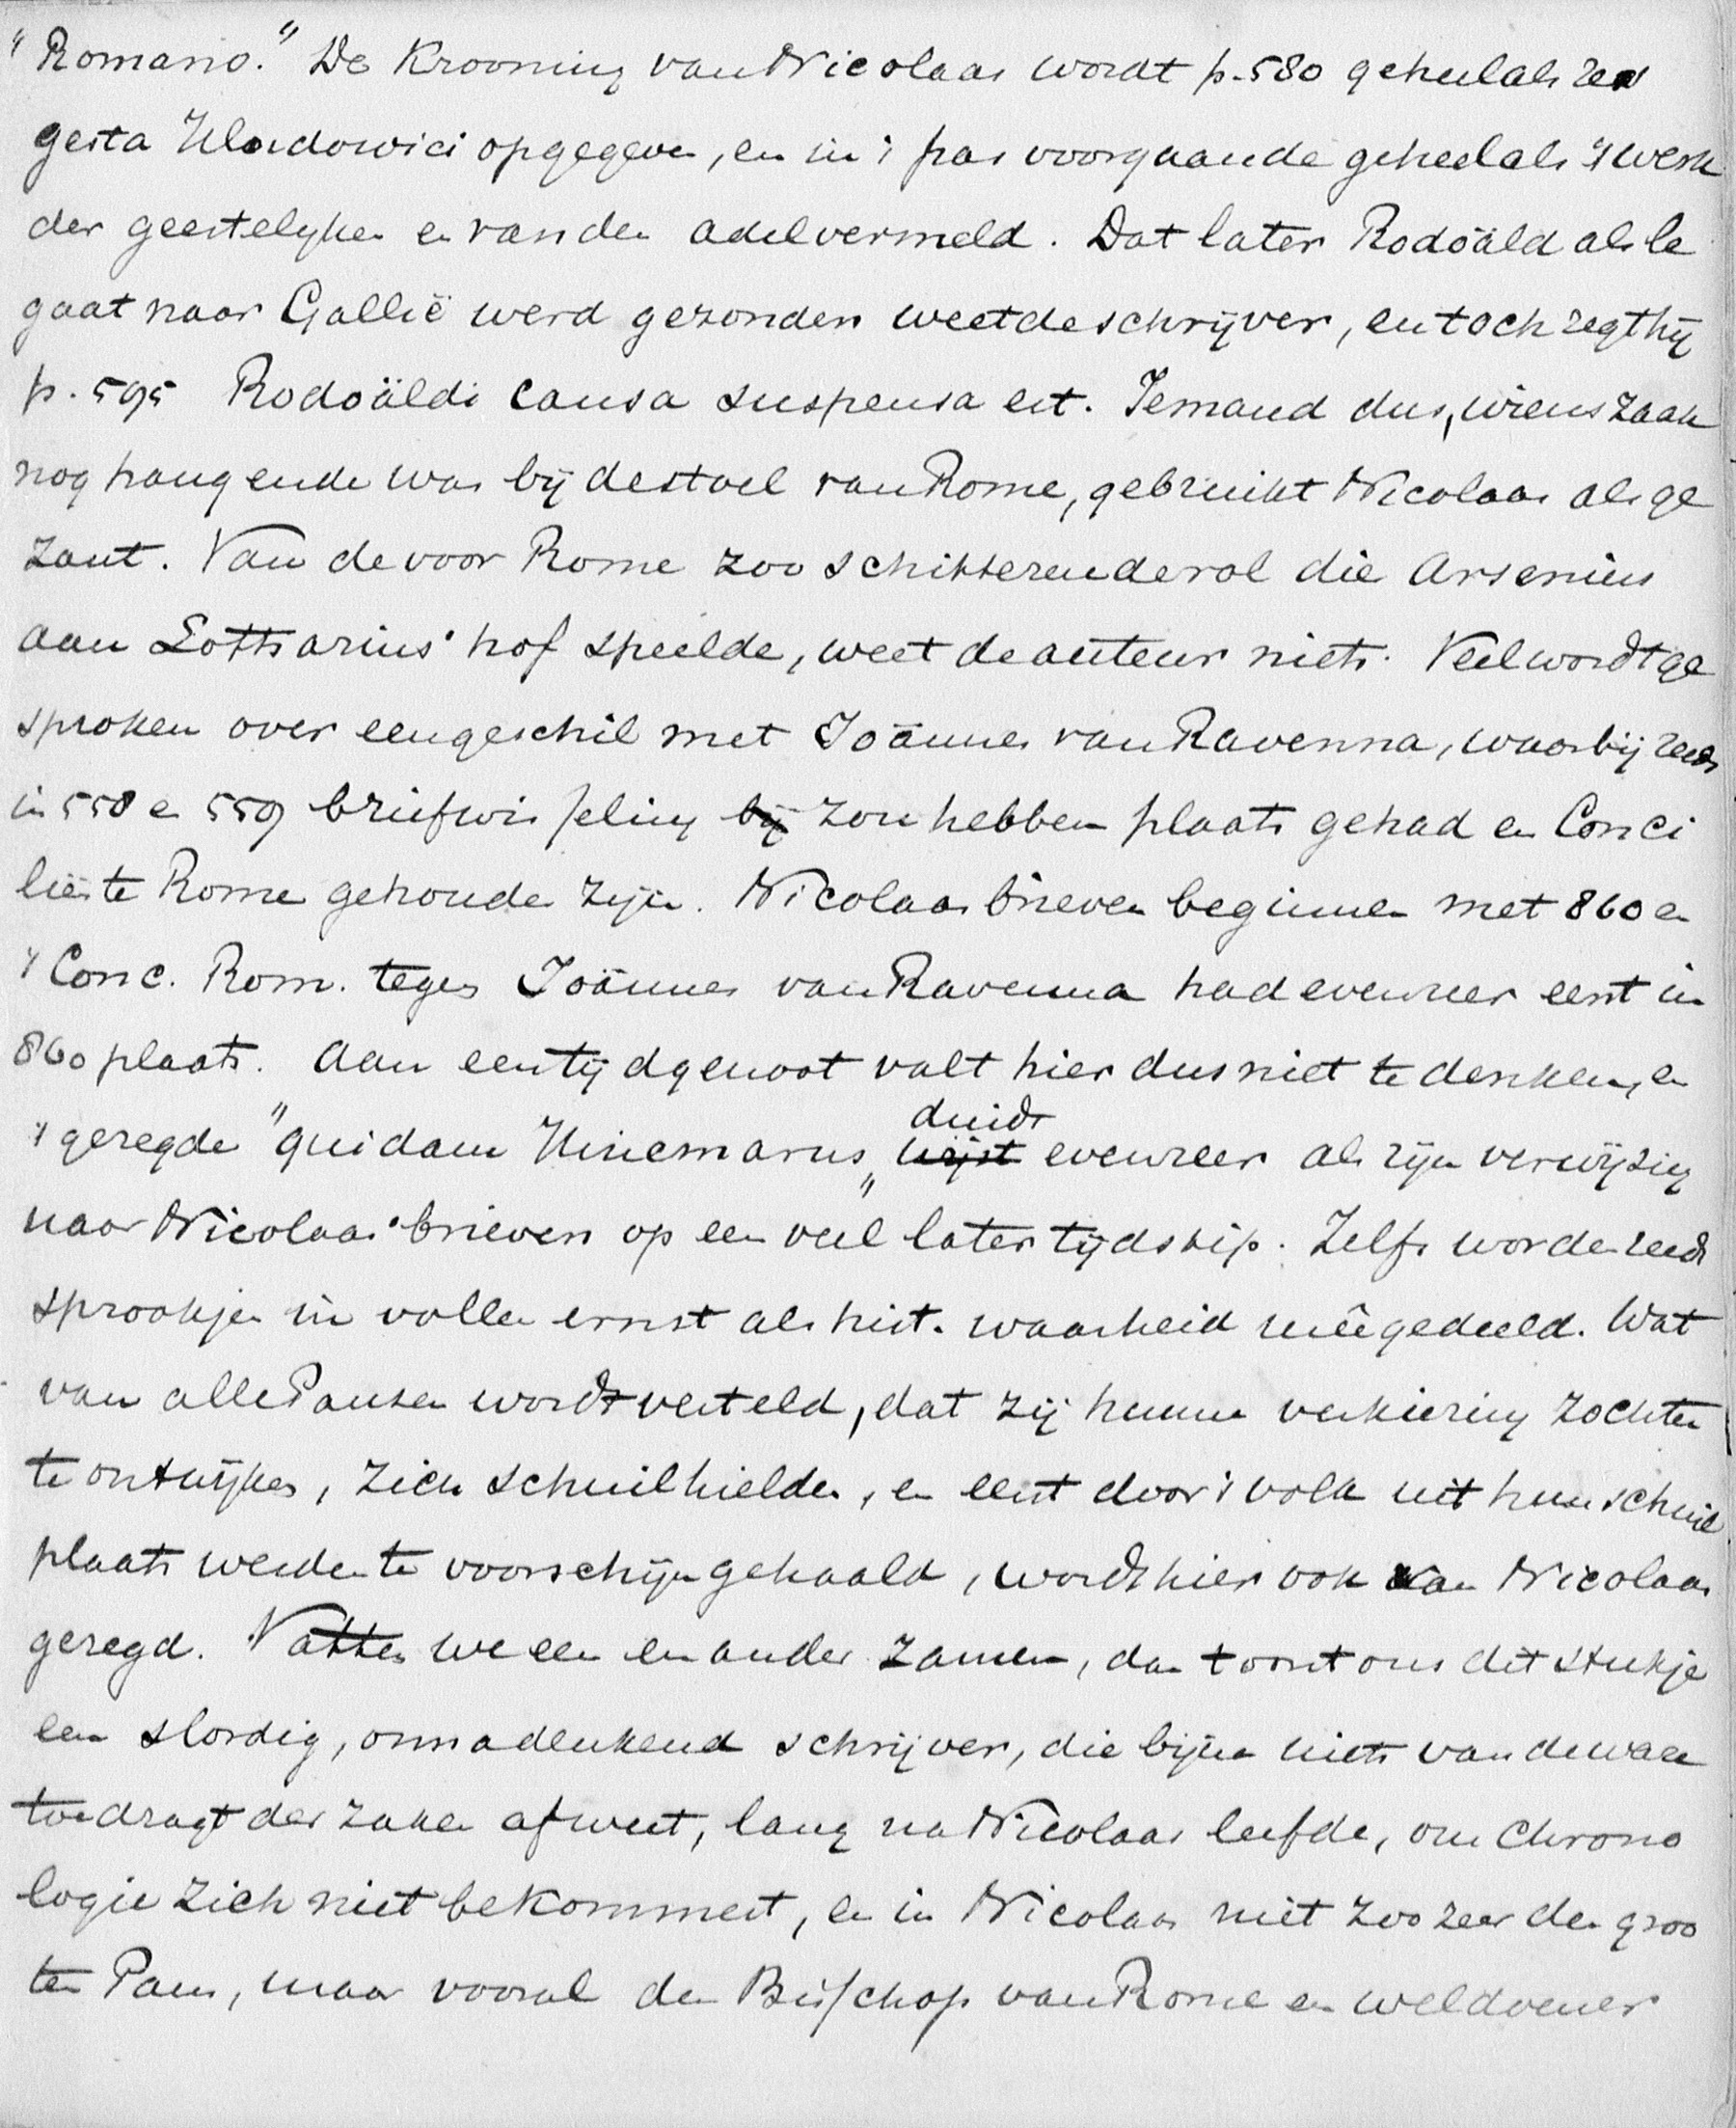 "Romano." De Krooning van Nicolaas wordt p. 580 geheel als res
gesta Hludowici opgegeven, en in 't pas voorgaande geheel als 't werk
der geestelyken en van den adel vermeld. Dat later Rodoäld als le
gaat naar Gallië werd gezonden weet de schrijver, en toch zegt hij
p. 595 Rodoäldi causa suspensa est. Iemand dus, wiens zaak
nog hangende was bij de stoel van Rome, gebruikt Nicolaas als ge
zant. Van de voor Rome zoo schitterende rol die Arsenius
aan Lotharius' hof speelde, weet de auteur niets. Veel wordt ge
sproken over een geschil met Joännes van Ravenna, waarbij reeds
in 558 en 559 briefwisseling bij zou hebben plaats gehad en Conci
liës te Rome gehouden zijn. Nicolaas brieven beginnen met 860 en
't Conc. Rom. tegen Joännes van Ravenna had evenzeer eerst in
860 plaats. Aan een tijdgenoot valt hier dus niet te denken, en
't gezegde "quidam Hincmarus" wijst duidt evenzeer als zijn verwijzing
naar Nicolaas' brieven op een veel later tijdstip. Zelfs worden reeds
sprookjes in vollen ernst als hist. waarheid meêgedeeld. Wat
van alle Pausen wordt verteld, dat zij hunne verkiezing zochten
te ontwijken, zich schuil hielden, en eerst door 't volk uit hun schuil
plaats werden te voorschijn gehaald, wordt hier ook van Nicolaas
gezegd. Vatten we een en ander zamen, dan toont ons dit stukje
een slordig, onnadenkend schrijver, die bijna niets van de ware
toedragt der zaken afweet, lang na Nicolaas leefde, om Chrono
logie zich niet bekommert, en in Nicolaas niet zoo zeer den groo
ten Paus, maar vooral den Bisschop van Rome en weldoener